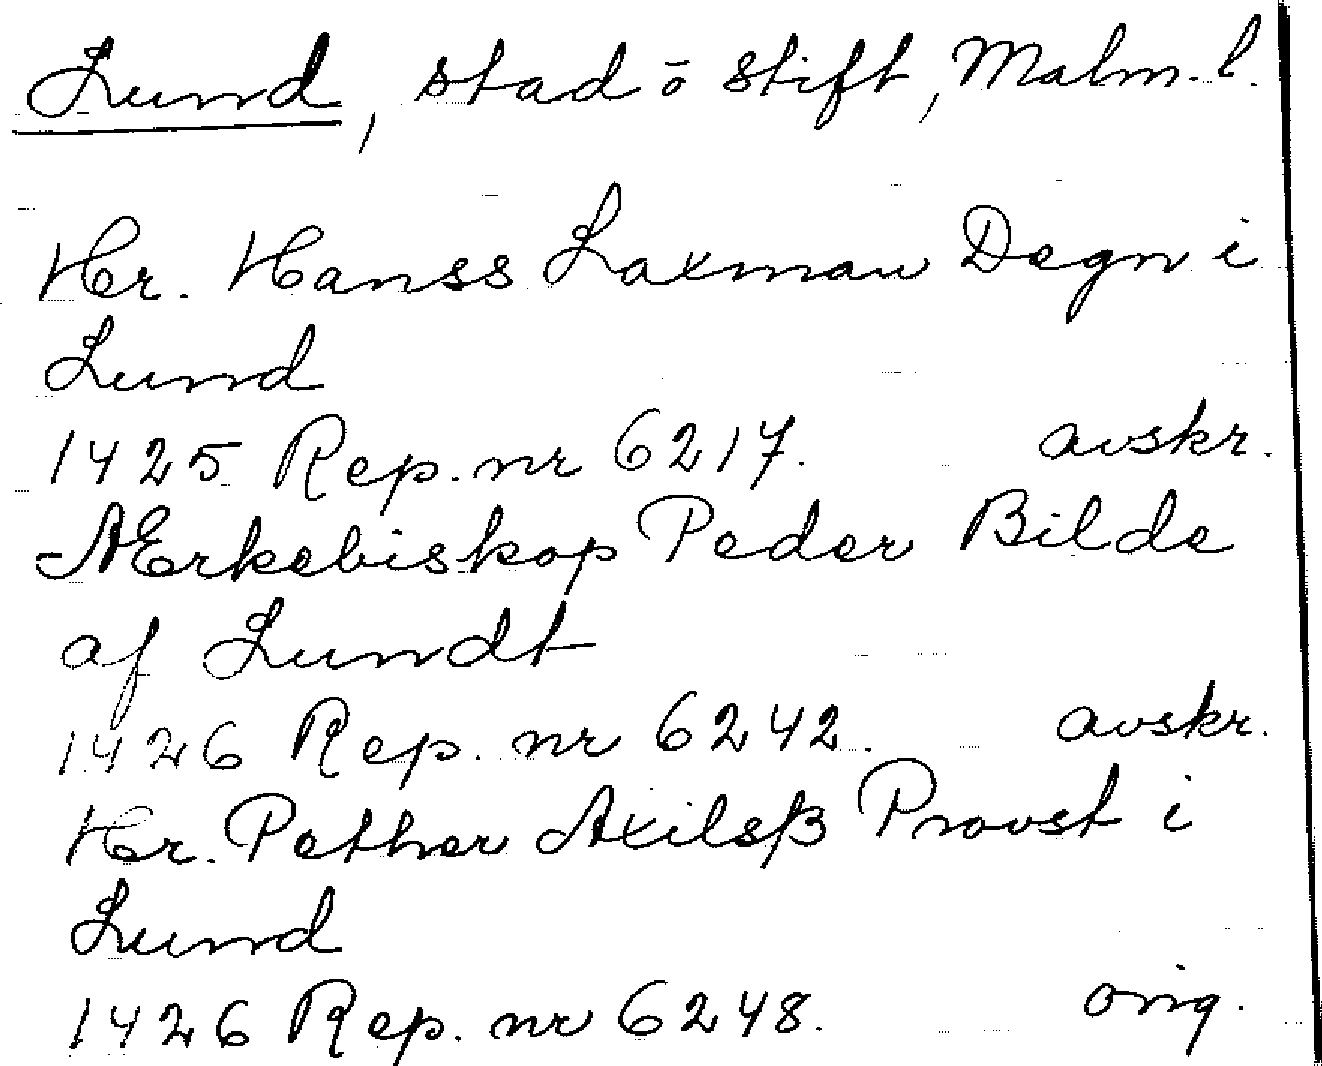 Lund, stad o stift, Malm. l.
Hr. Hanss Laxman Degn i
Lund
1425 Rep. nr 6217. avskr.
Ærkebiskop Peder Bilde
af Lundt
1426 Rep. nr 6242. avskr.
Hr. Pether Axilsß Provst i
Lund
1426 Rep. nr 6248. orig.